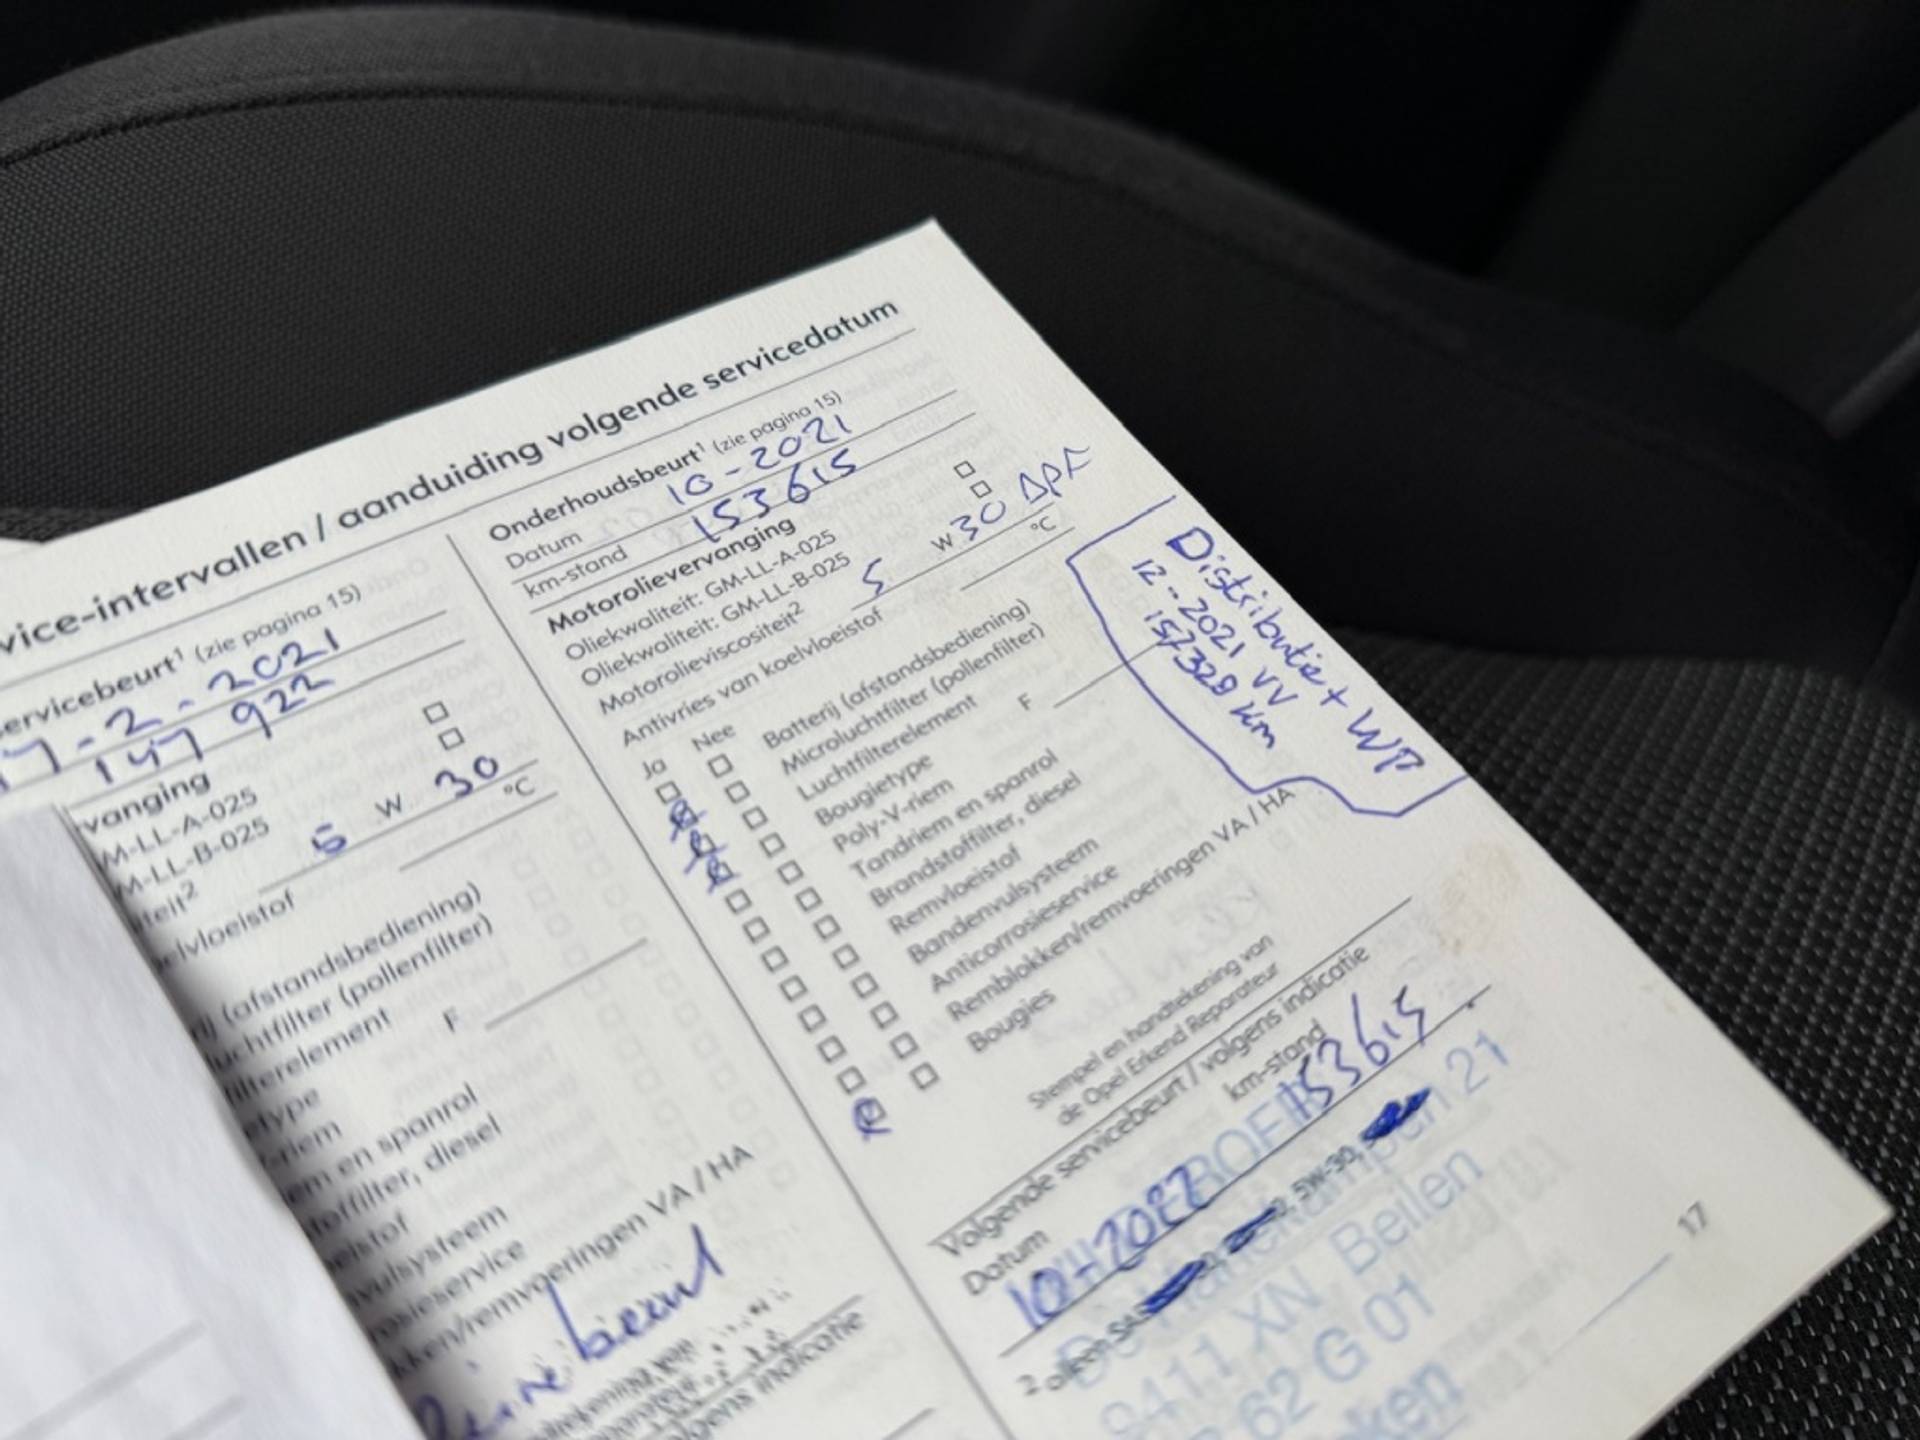 vice-intervallen / aanduiding volgende servicedatum
ervicebeurt¹ (zie pagina 15)
-2-2021
147 922
vanging
M-LL-A-025
M-LL-B-025
iteit² 5 W 30
elvloeistof °C
ij (afstandsbediening)
luchtfilter (pollenfilter)
filterelement
etype F
-riem
em en spanrol
toffilter, diesel
eistof
vulsysteem
osieservice
kken/remvoeringen VA / HA
beurt
lgens indicatie
Onderhoudsbeurt¹ (zie pagina 15)
Datum 10-2021
km-stand 153615
Motorolievervanging
Oliekwaliteit: GM-LL-A-025
Oliekwaliteit: GM-LL-B-025
Motorolieviscositeit² 5 W 30 DPF
Antivries van koelvloeistof °C
Ja Nee
Batterij (afstandsbediening)
Microluchtfilter (pollenfilter)
Luchtfilterelement
Bougietype F
Poly-V-riem
Tandriem en spanrol
Brandstoffilter, diesel
Remvloeistof
Bandenvulsysteem
Anticorrosieservice
Remblokken/remvoeringen VA / HA
Bougies
Distributie + WP
12-2021 VV
157328 km
Stempel en handtekening van
de Opel Erkend Reparateur
Volgende servicebeurt / volgens indicatie
Datum km-stand
10-2022 153615
2 alleen SAE 5W-30,
21
9411 XN Beilen
62 G 01
17